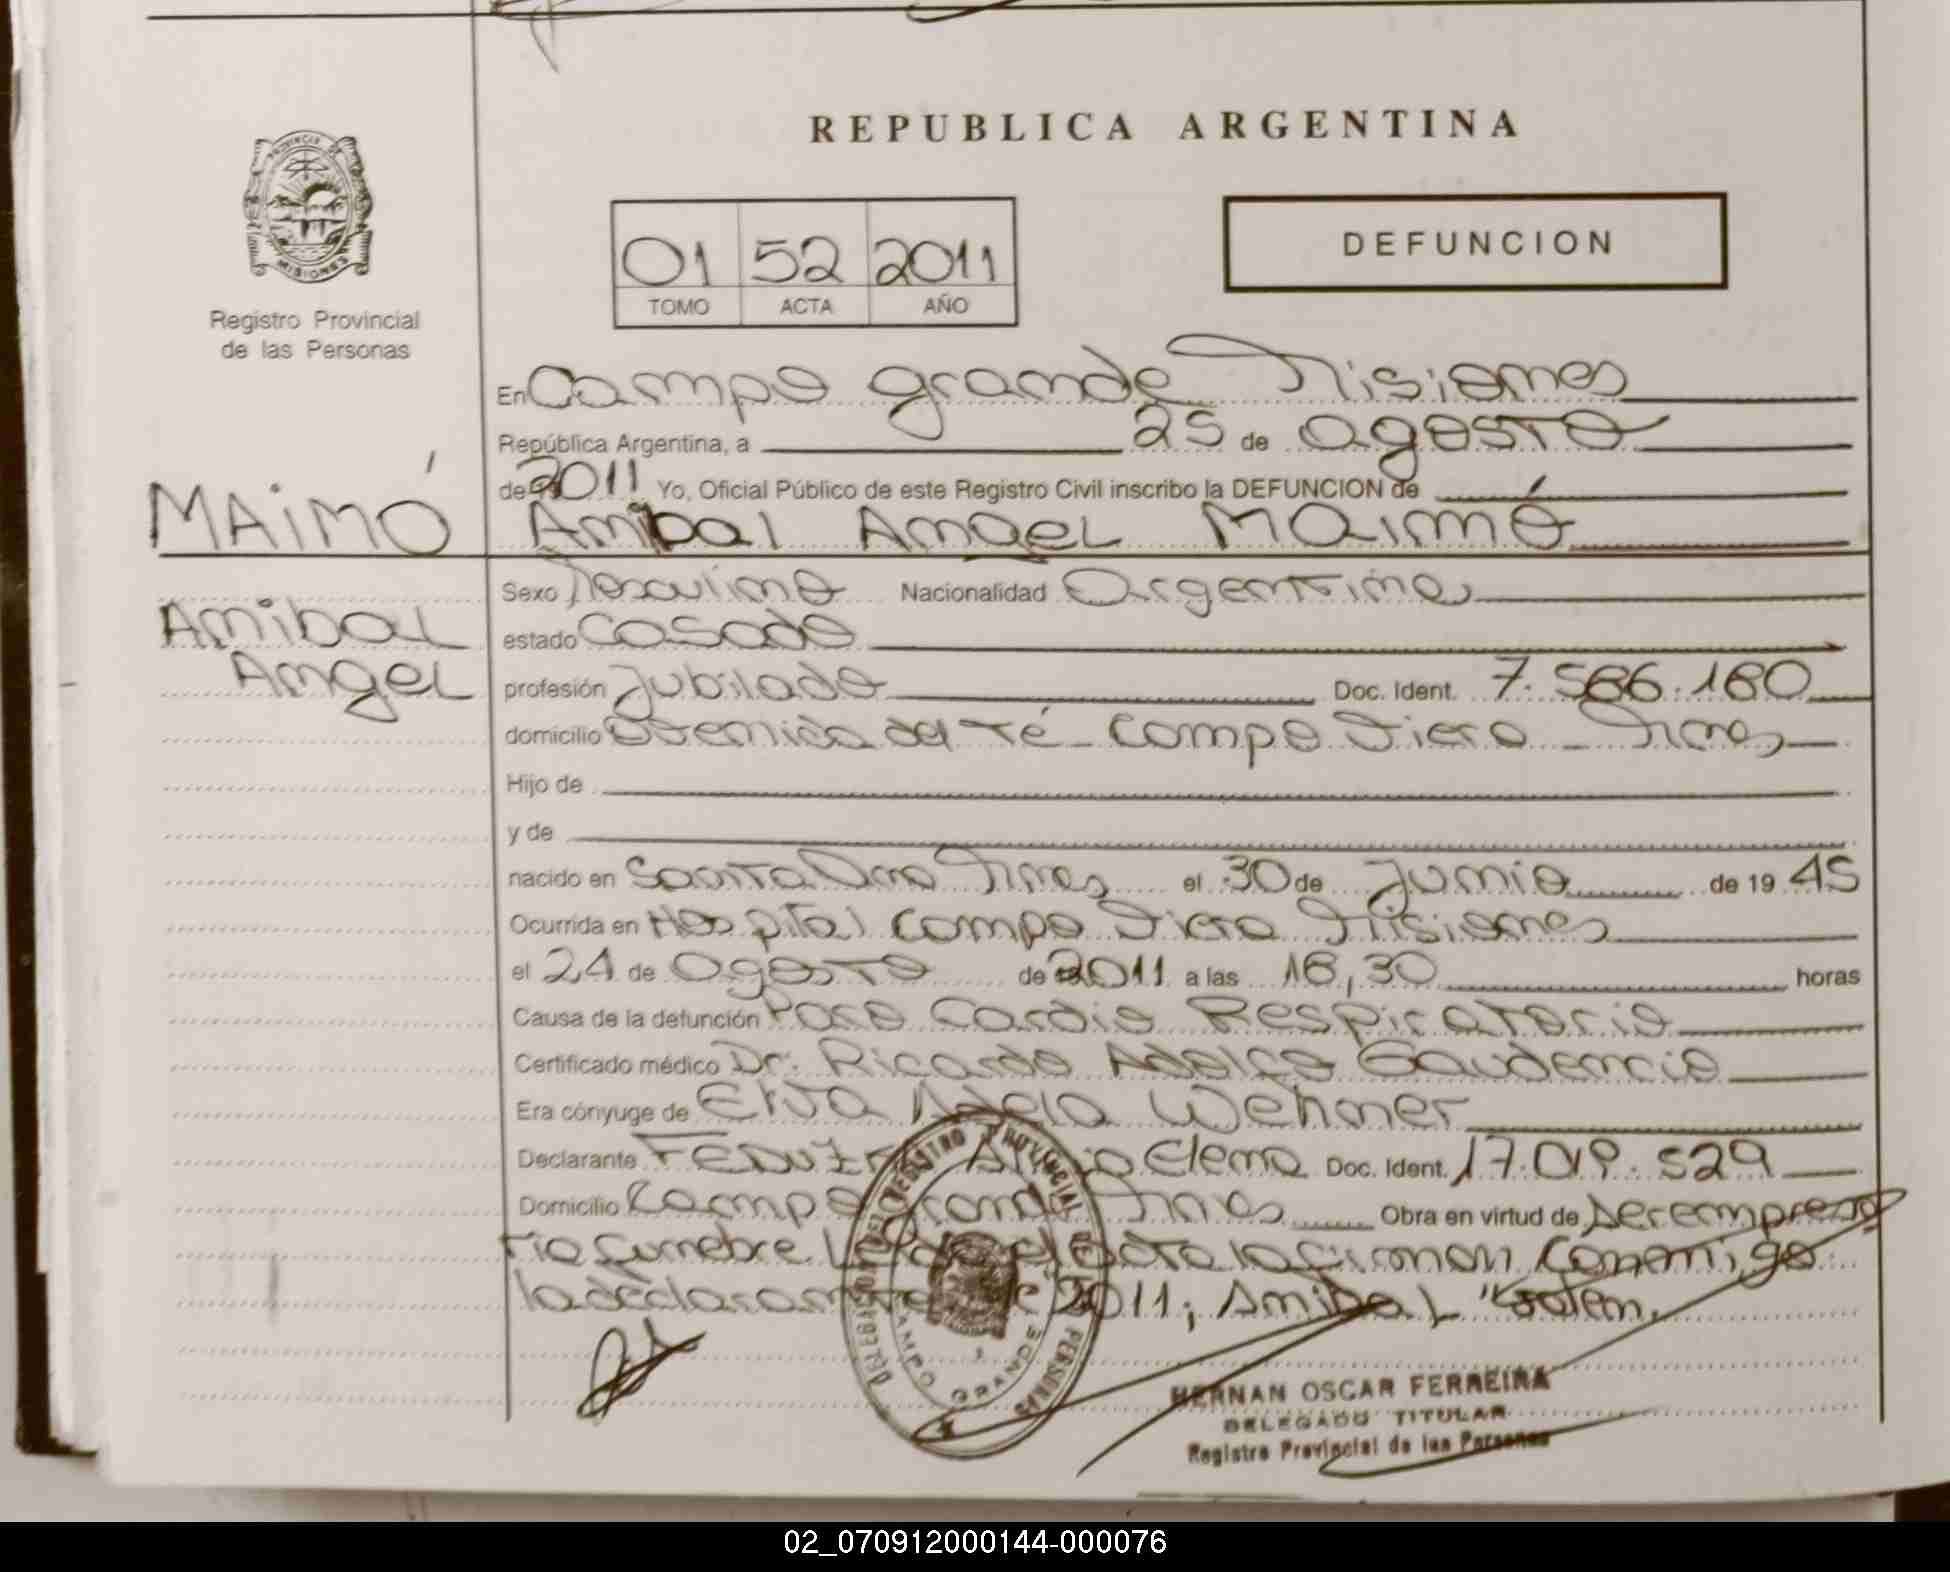 REPUBLICA ARGENTINA
PROVINCIA DE
MISIONES
Registro Provincial
de las Personas
01 52 2011
TOMO ACTA AÑO
DEFUNCION
En Campo grande Misiones
República Argentina, a 25 de agosto
de 2011 Yo, Oficial Público de este Registro Civil inscribo la DEFUNCION de
MAIMÓ
Anibal Angel Maimó
Anibal
Angel
Sexo Masculino Nacionalidad Argentina
estado Casado
profesión Jubilado Doc. Ident. 7.586.180
domicilio Avenida del Té - Campo Viera - Mnes
Hijo de
y de
nacido en Santa Ana Mnes el 30 de Junio de 1945
Ocurrida en Hospital Campo Viera Misiones
el 24 de agosto de 2011 a las 18,30 horas
Causa de la defunción Paro Cardio Respiratorio
Certificado médico Dr: Ricardo Adolfo Gaudencio
Era cónyuge de Elva Wehner
Declarante Elena Doc. Ident. 17.019.529
Domicilio Campo grande Mnes Obra en virtud de ser empresa
ria funebre. Leida el acta la firman Conmigo
la declarante de 2011; Anibal "Valen.
DELEGACION DEL REGISTRO PROVINCIAL DE LAS PERSONAS
CAMPO GRANDE
HERNAN OSCAR FERREIRA
DELEGADO TITULAR
Registro Provincial de las Personas
02_070912000144-000076